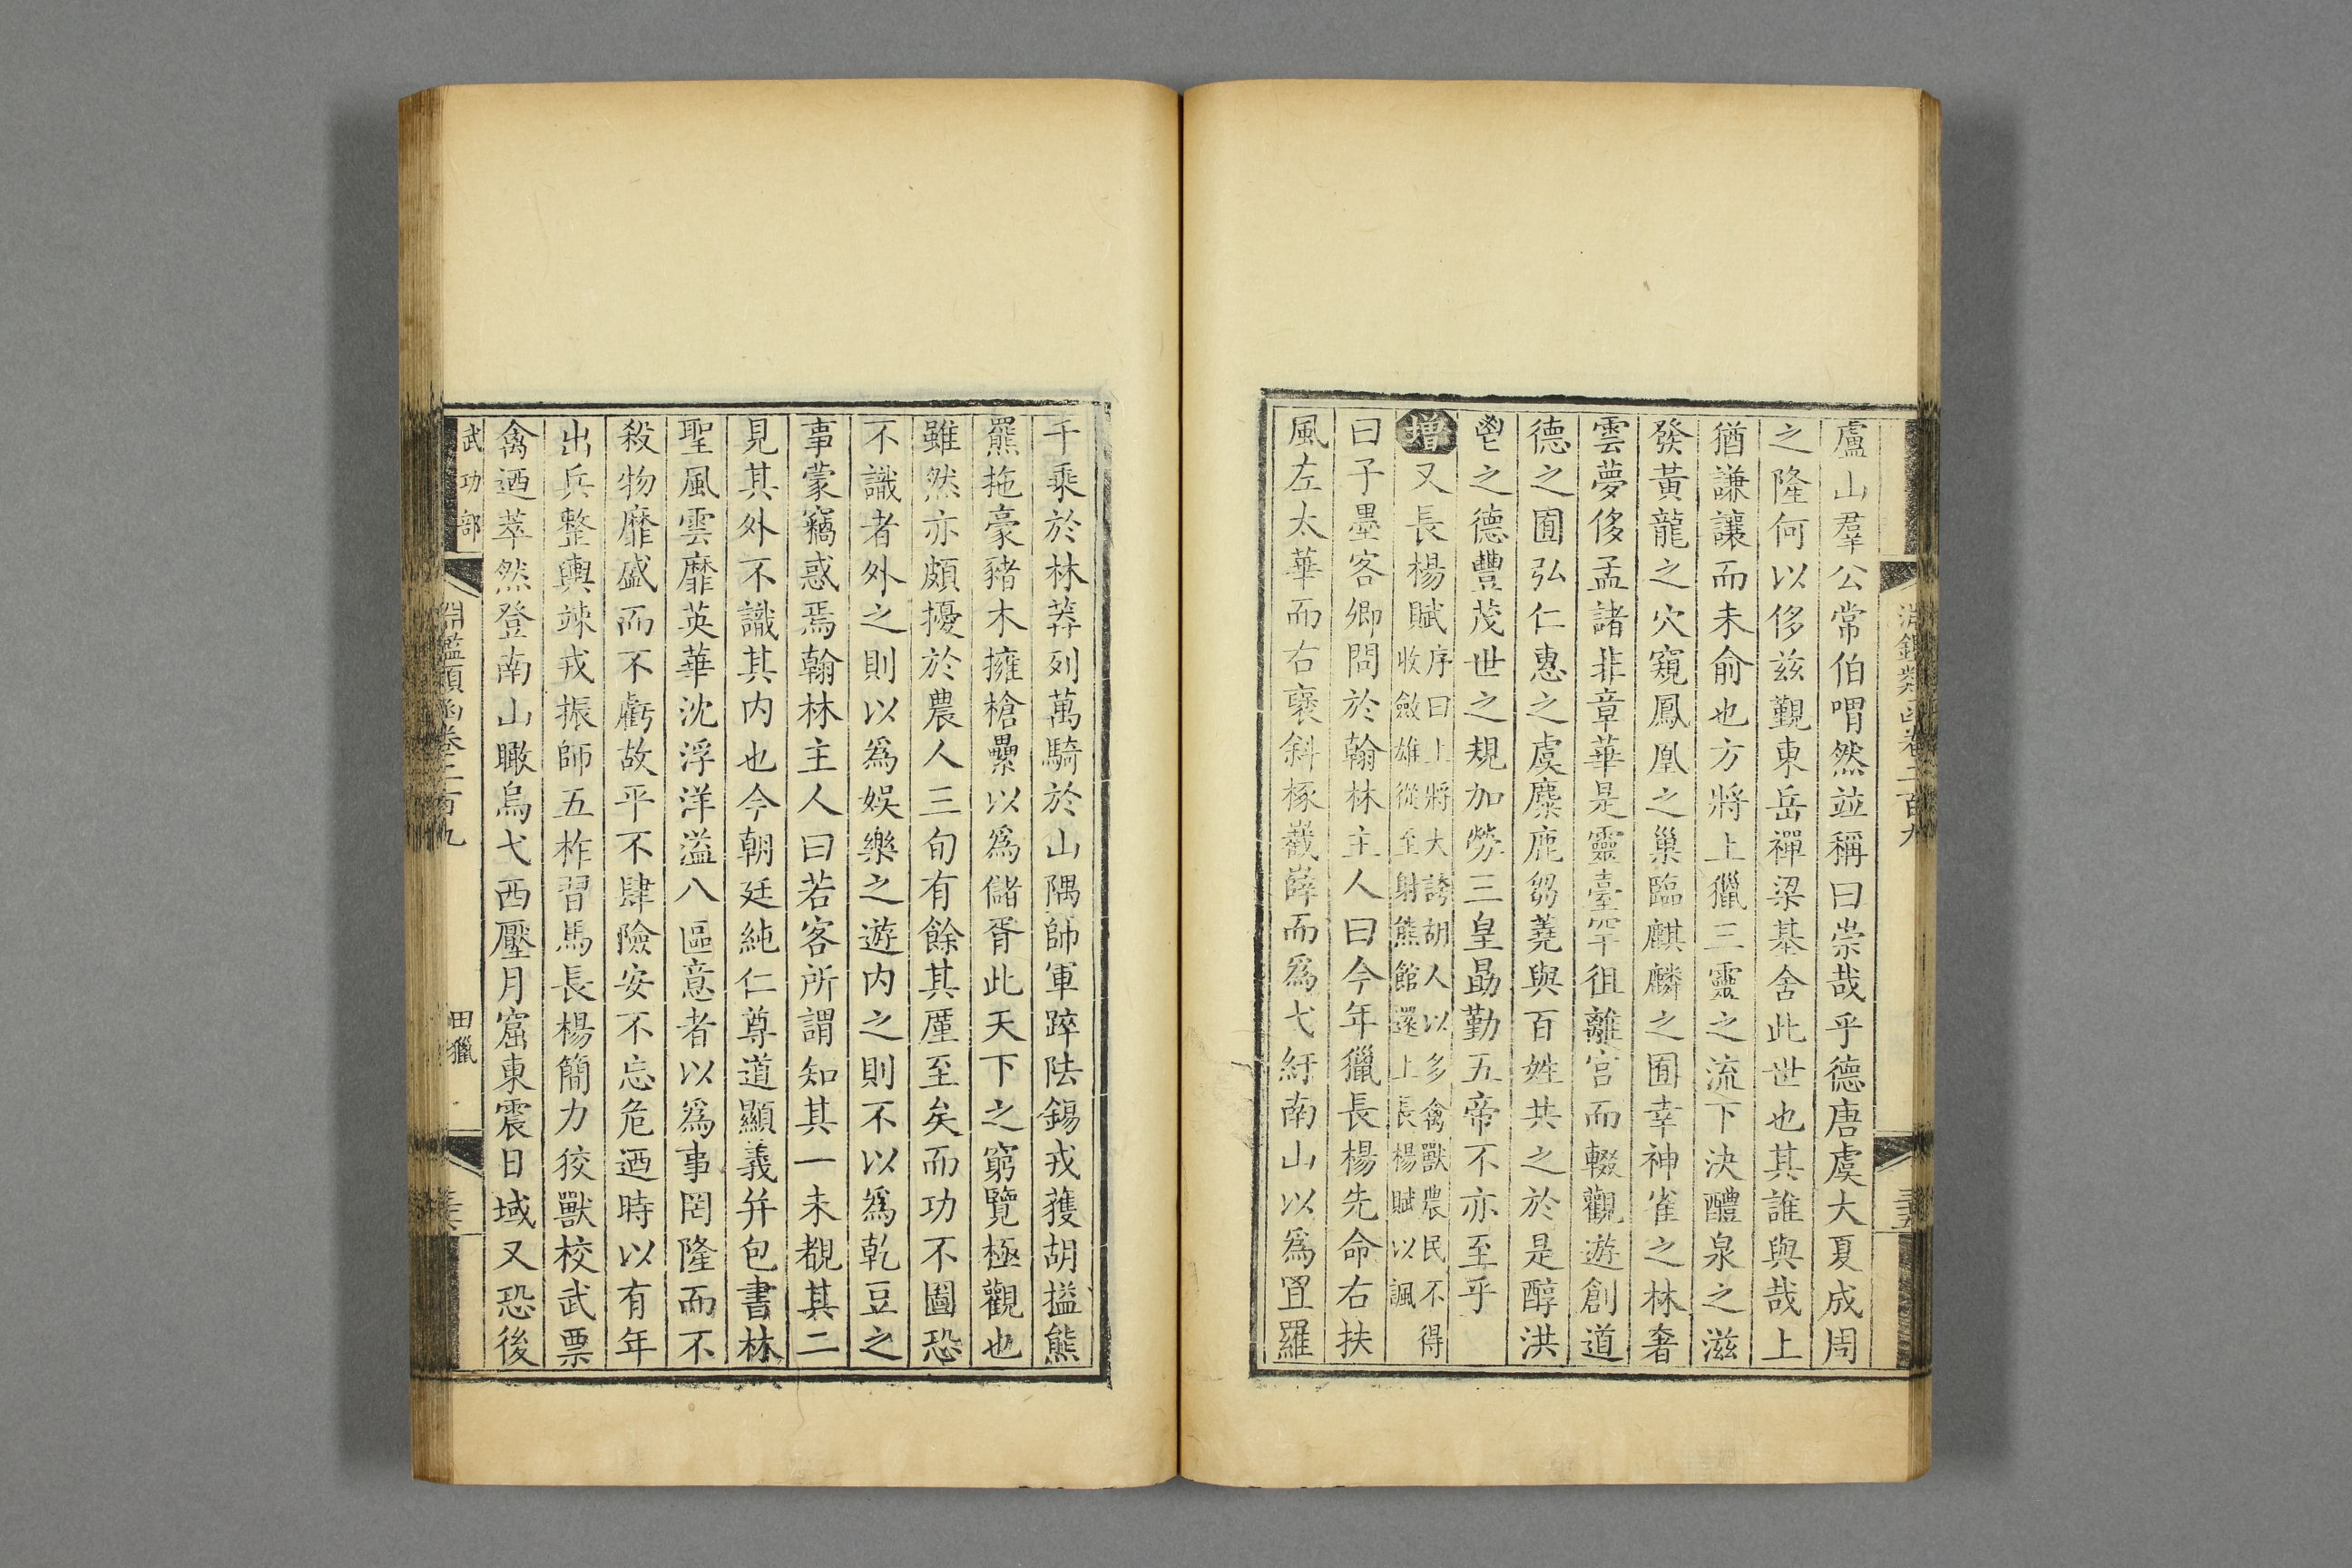 盧山羣公常伯喟然並稱曰崇哉乎德唐虞大夏成周
之隆何以侈兹觀東岳禪梁基舍此世也其誰與哉上
猶謙讓而未俞也方將上獵三靈之流下決醴泉之滋
發黃龍之穴窺鳳凰之巢臨麒麟之囿幸神雀之林奢
雲夢侈孟諸非章華是靈臺罕徂離宮而輟觀遊創道
德之囿弘仁惠之虞麋鹿芻蕘與百姓共之於是醇洪
鬯之德豐茂世之規加勞三皇勗勤五帝不亦至乎
增又長楊賦序曰上將大誇胡人以多禽獸農民不得
收斂雄從至射熊館還上長楊賦以諷
曰子墨客卿問於翰林主人曰今年獵長楊先命右扶
風左太華而右襃斜椓嶻嶭而爲弋紆南山以爲罝羅
淵鑑類函卷二百九
千乘於林莽列萬騎於山隅帥軍踤阹錫戎獲胡搤熊
羆拖豪豬木擁槍纍以爲儲胥此天下之窮覽極觀也
雖然亦頗擾於農人三旬有餘其廑至矣而功不圖恐
不識者外之則以爲娛樂之遊内之則不以爲乾豆之
事蒙竊惑焉翰林主人曰若客所謂知其一未覩其二
見其外不識其内也今朝廷純仁尊道顯義并包書林
聖風雲靡英華沈浮洋溢八區意者以爲事罔隆而不
殺物靡盛而不虧故平不肆險安不忘危迺時以有年
出兵整輿竦戎振師五柞習馬長楊簡力狡獸校武票
禽迺萃然登南山瞰烏弋西壓月窟東震日域又恐後
武功部
淵鑑類函卷二百九
田獵